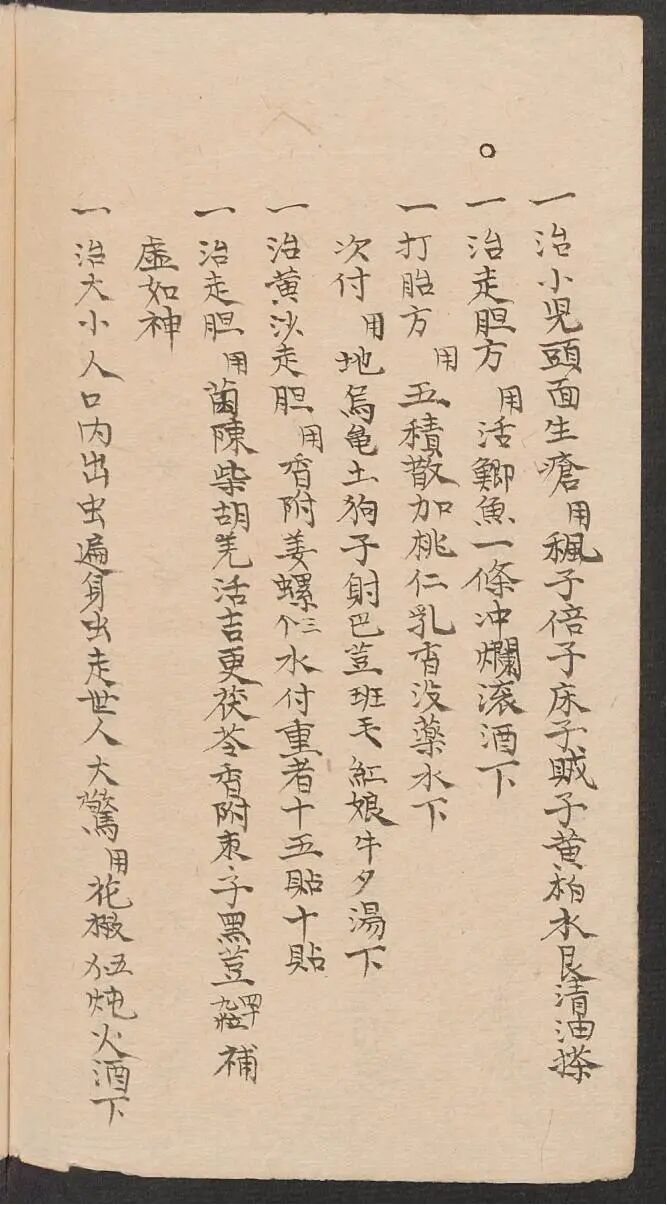 一治小児頭面生瘡用楓子倍子床子賊子黄柏水艮清油搽
一治走胆方用活鯽魚一條冲爛滚酒下
一打胎方用五積散加桃仁乳香没藥水下
次付用地烏亀土狗子射巴荳班毛紅娘牛夕湯下
一治黄沙走胆用香附姜螺三个水付重者十五貼十貼
一治走胆用茵陳柴胡羌活吉更茯苓香附枣子黑荳補
虚如神
一治大小人口内出虫遍身出走世人大驚用花椒伍炖火酒下